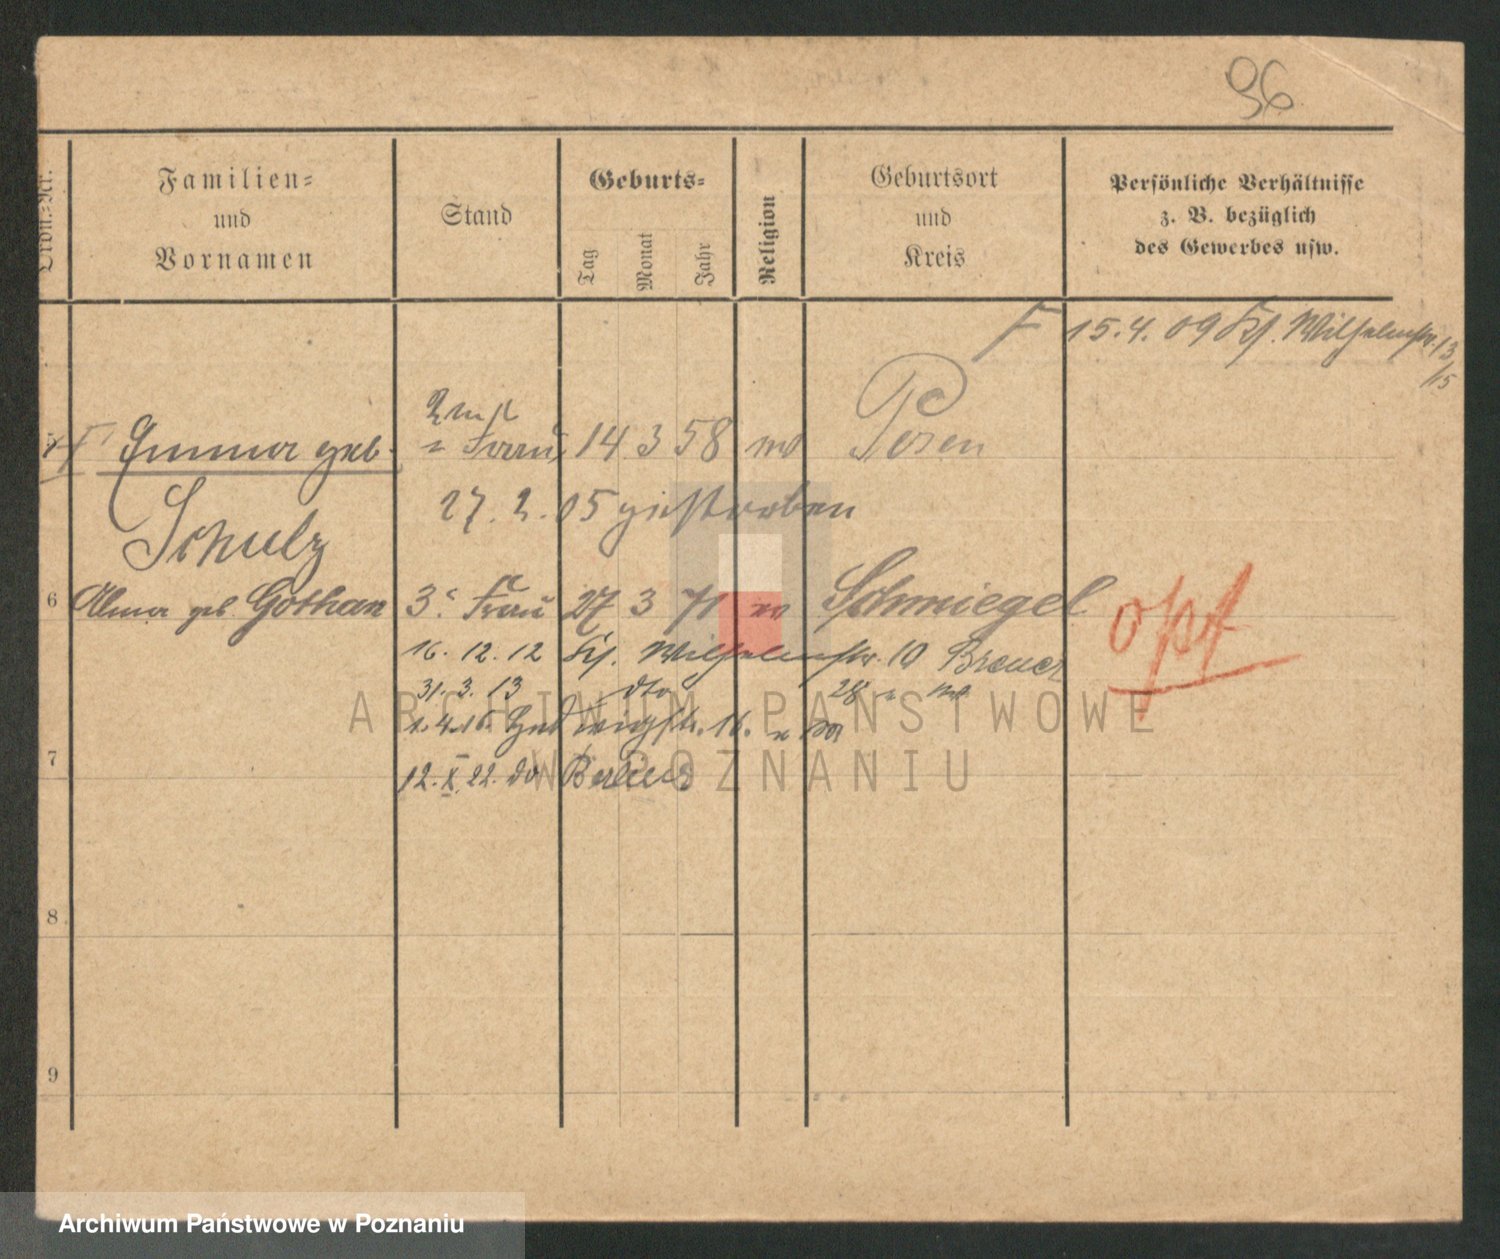 96
Ordn.-Nr.
Familien-
und
Vornamen
Stand
Geburts-
Tag
Monat
Jahr
Religion
Geburtsort
und
Kreis
Persönliche Verhältnisse
z. B. bezüglich
des Gewerbes usw.
15.4.09 Wilhelmstr. 13/15
5 Emma geb. Frau 14 3 58 Posen
27. 2. 05 gestorben
Schulz
6 Alma geb. Gothan 3. Frau 27 3 71 Schmiegel opt
16. 12. 12 Wilhelmstr. 10 Breuer
31. 3. 13 dto 28
1. 4. 16. Hedwigstr. 16.
7
12. X. 22. Berlin
8
9
ARCHIWUM PAŃSTWOWE
W POZNANIU
Archiwum Państwowe w Poznaniu